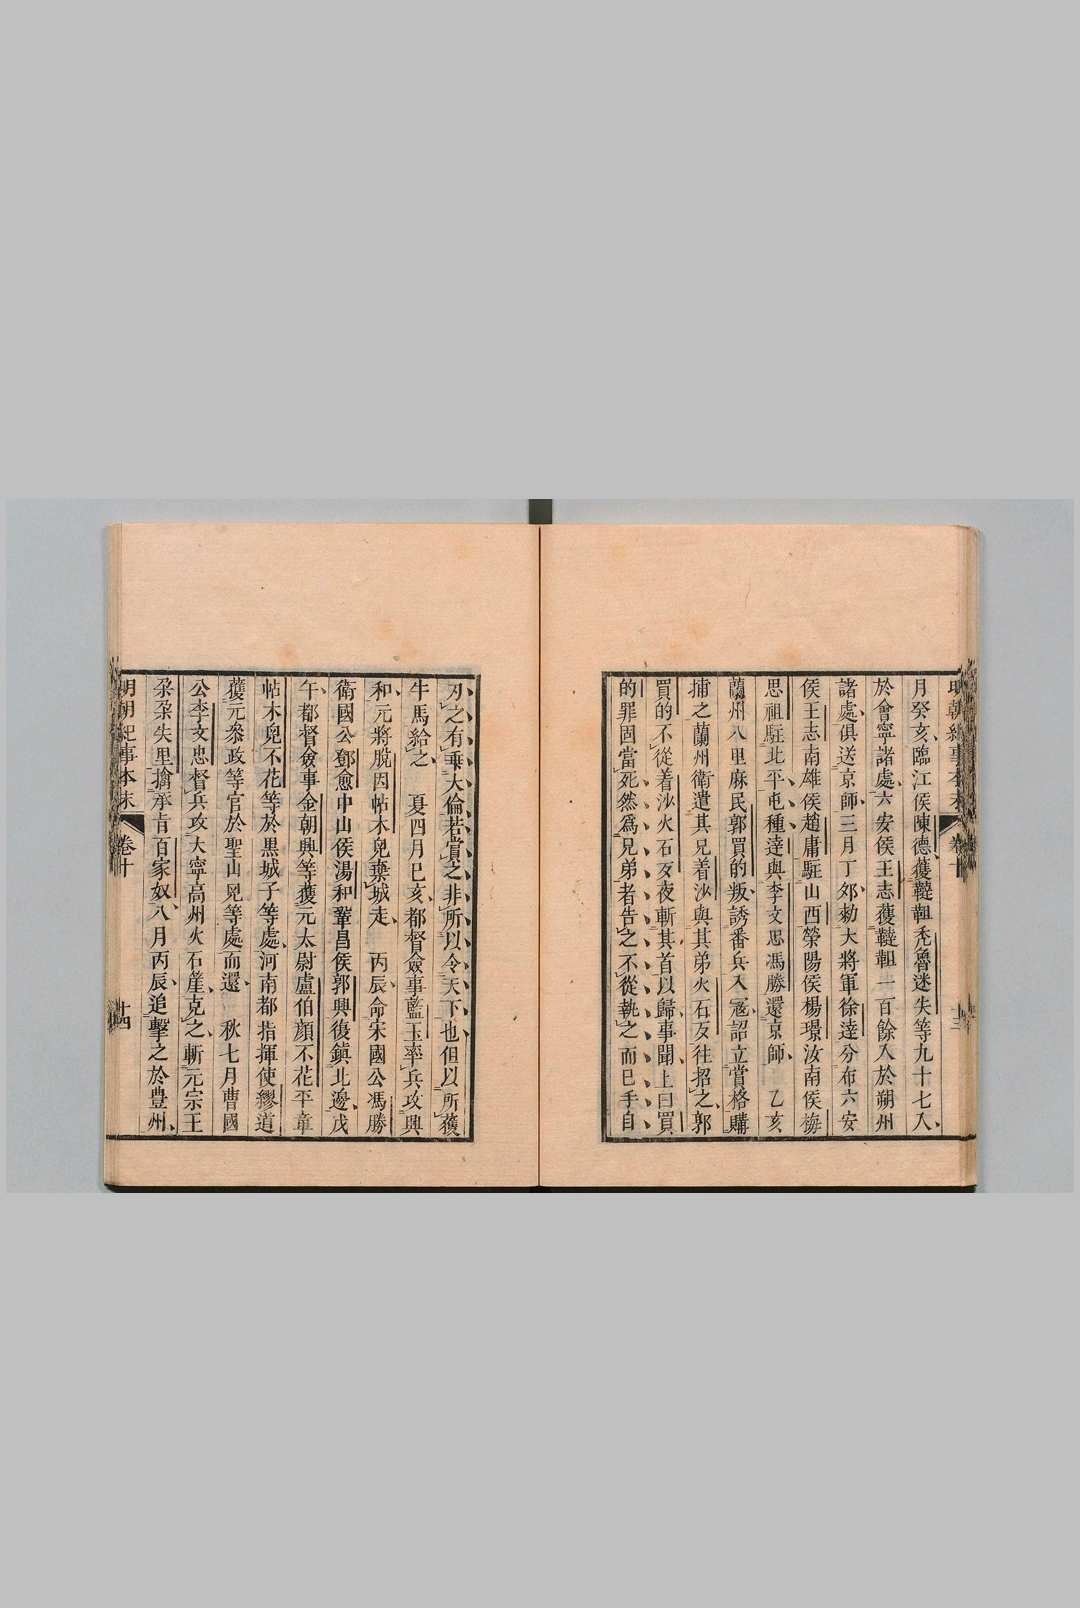 明朝紀事本末 卷十 十三
月癸亥臨江侯陳德獲韃靼禿魯迷失等九十七人
於會寧諸處六安侯王志獲韃靼一百餘人於朔州
諸處俱送京師三月丁夘勑大將軍徐達分布六安
侯王志南雄侯趙庸駐山西滎陽侯楊璟汝南侯梅
思祖駐北平屯種達與李文忠馮勝還京師 乙亥
蘭州八里麻民郭買的叛誘番兵入冦詔立賞格購
捕之蘭州衛遣其兄着沙與其弟火石歹往招之郭
買的不從着沙火石歹夜斬其首以歸事聞上曰買
的罪固當死然爲兄弟者告之不從執之而已手自
刃之有乖大倫若賞之非所以令天下也但以所獲
牛馬給之 夏四月己亥都督僉事藍玉率兵攻興
和元將脫因帖木兒棄城走 丙辰命宋國公馮勝
衛國公鄧愈中山侯湯和鞏昌侯郭興復鎮北邊戊
午都督僉事金朝興等獲元太尉盧伯顏不花平章
帖木兒不花等於黑城子等處河南都指揮使繆道
獲元叅政等官於聖山兒等處而還 秋七月曹國
公李文忠督兵攻大寧高州火石崖克之斬元宗王
朶朶失里擒承旨百家奴八月丙辰追擊之於豊州
明朝紀事本末 卷十 十四